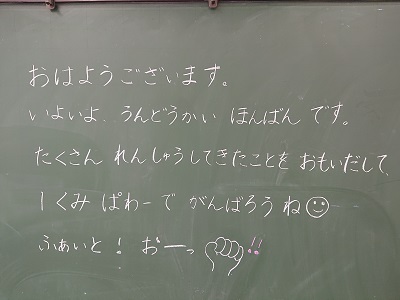 おはようございます。
いよいよ、うんどうかい ほんばん です。
たくさん れんしゅうしてきたことを おもいだして、
1くみ ぱわーで がんばろうね
ふぁいと! おーっ!!